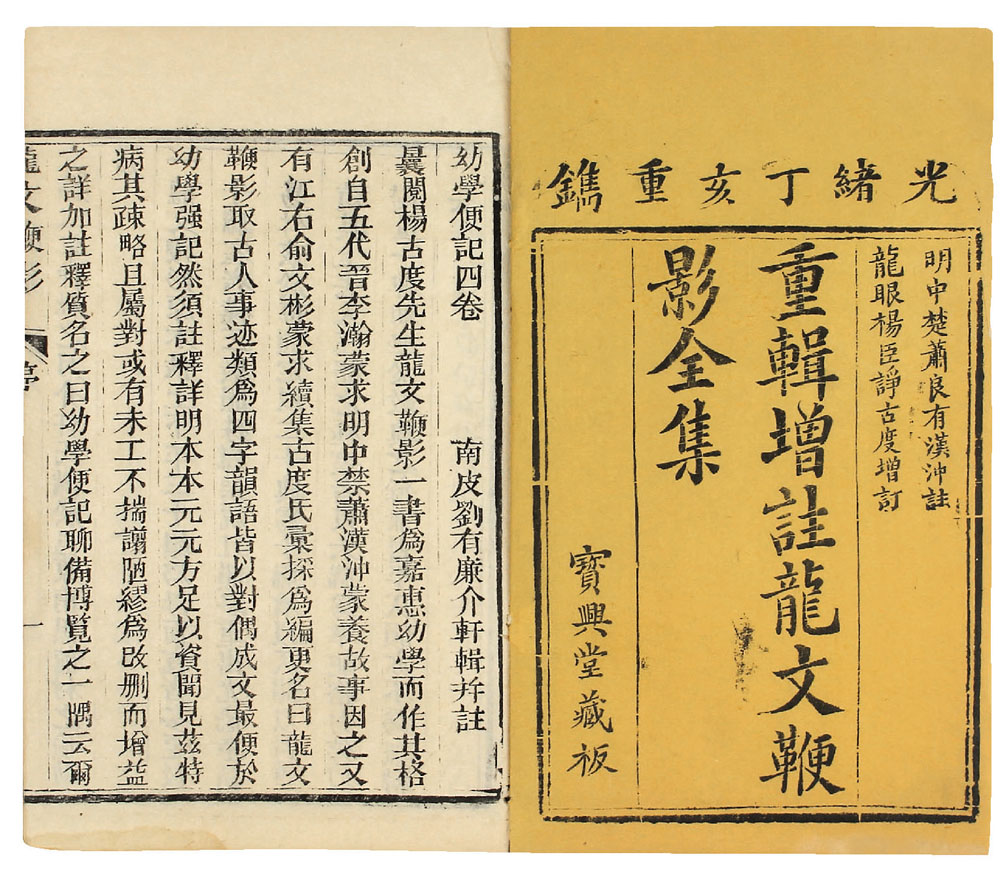 光緖丁亥重鐫
明中楚蕭良有漢沖註
龍眼楊臣諍古度增訂
重輯增註龍文鞭
影全集
寶興堂藏板
幼學便記四卷 南皮劉有廉介軒輯并註
曩閱楊古度先生龍文鞭影一書爲嘉惠幼學而作其格
創自五代晉李瀚蒙求明中禁蕭漢沖蒙養故事因之又
有江右俞文彬蒙求續集古度氏彙採爲編更名曰龍文
鞭影取古人事迹類爲四字韻語皆以對偶成文最便於
幼學强記然須註釋詳明本本元元方足以資聞見茲特
病其疎略且屬對或有未工不揣譾陋繆爲改删而增益
之詳加註釋質名之曰幼學便記聊備博覽之一隅云爾
龍文鞭影 序 一